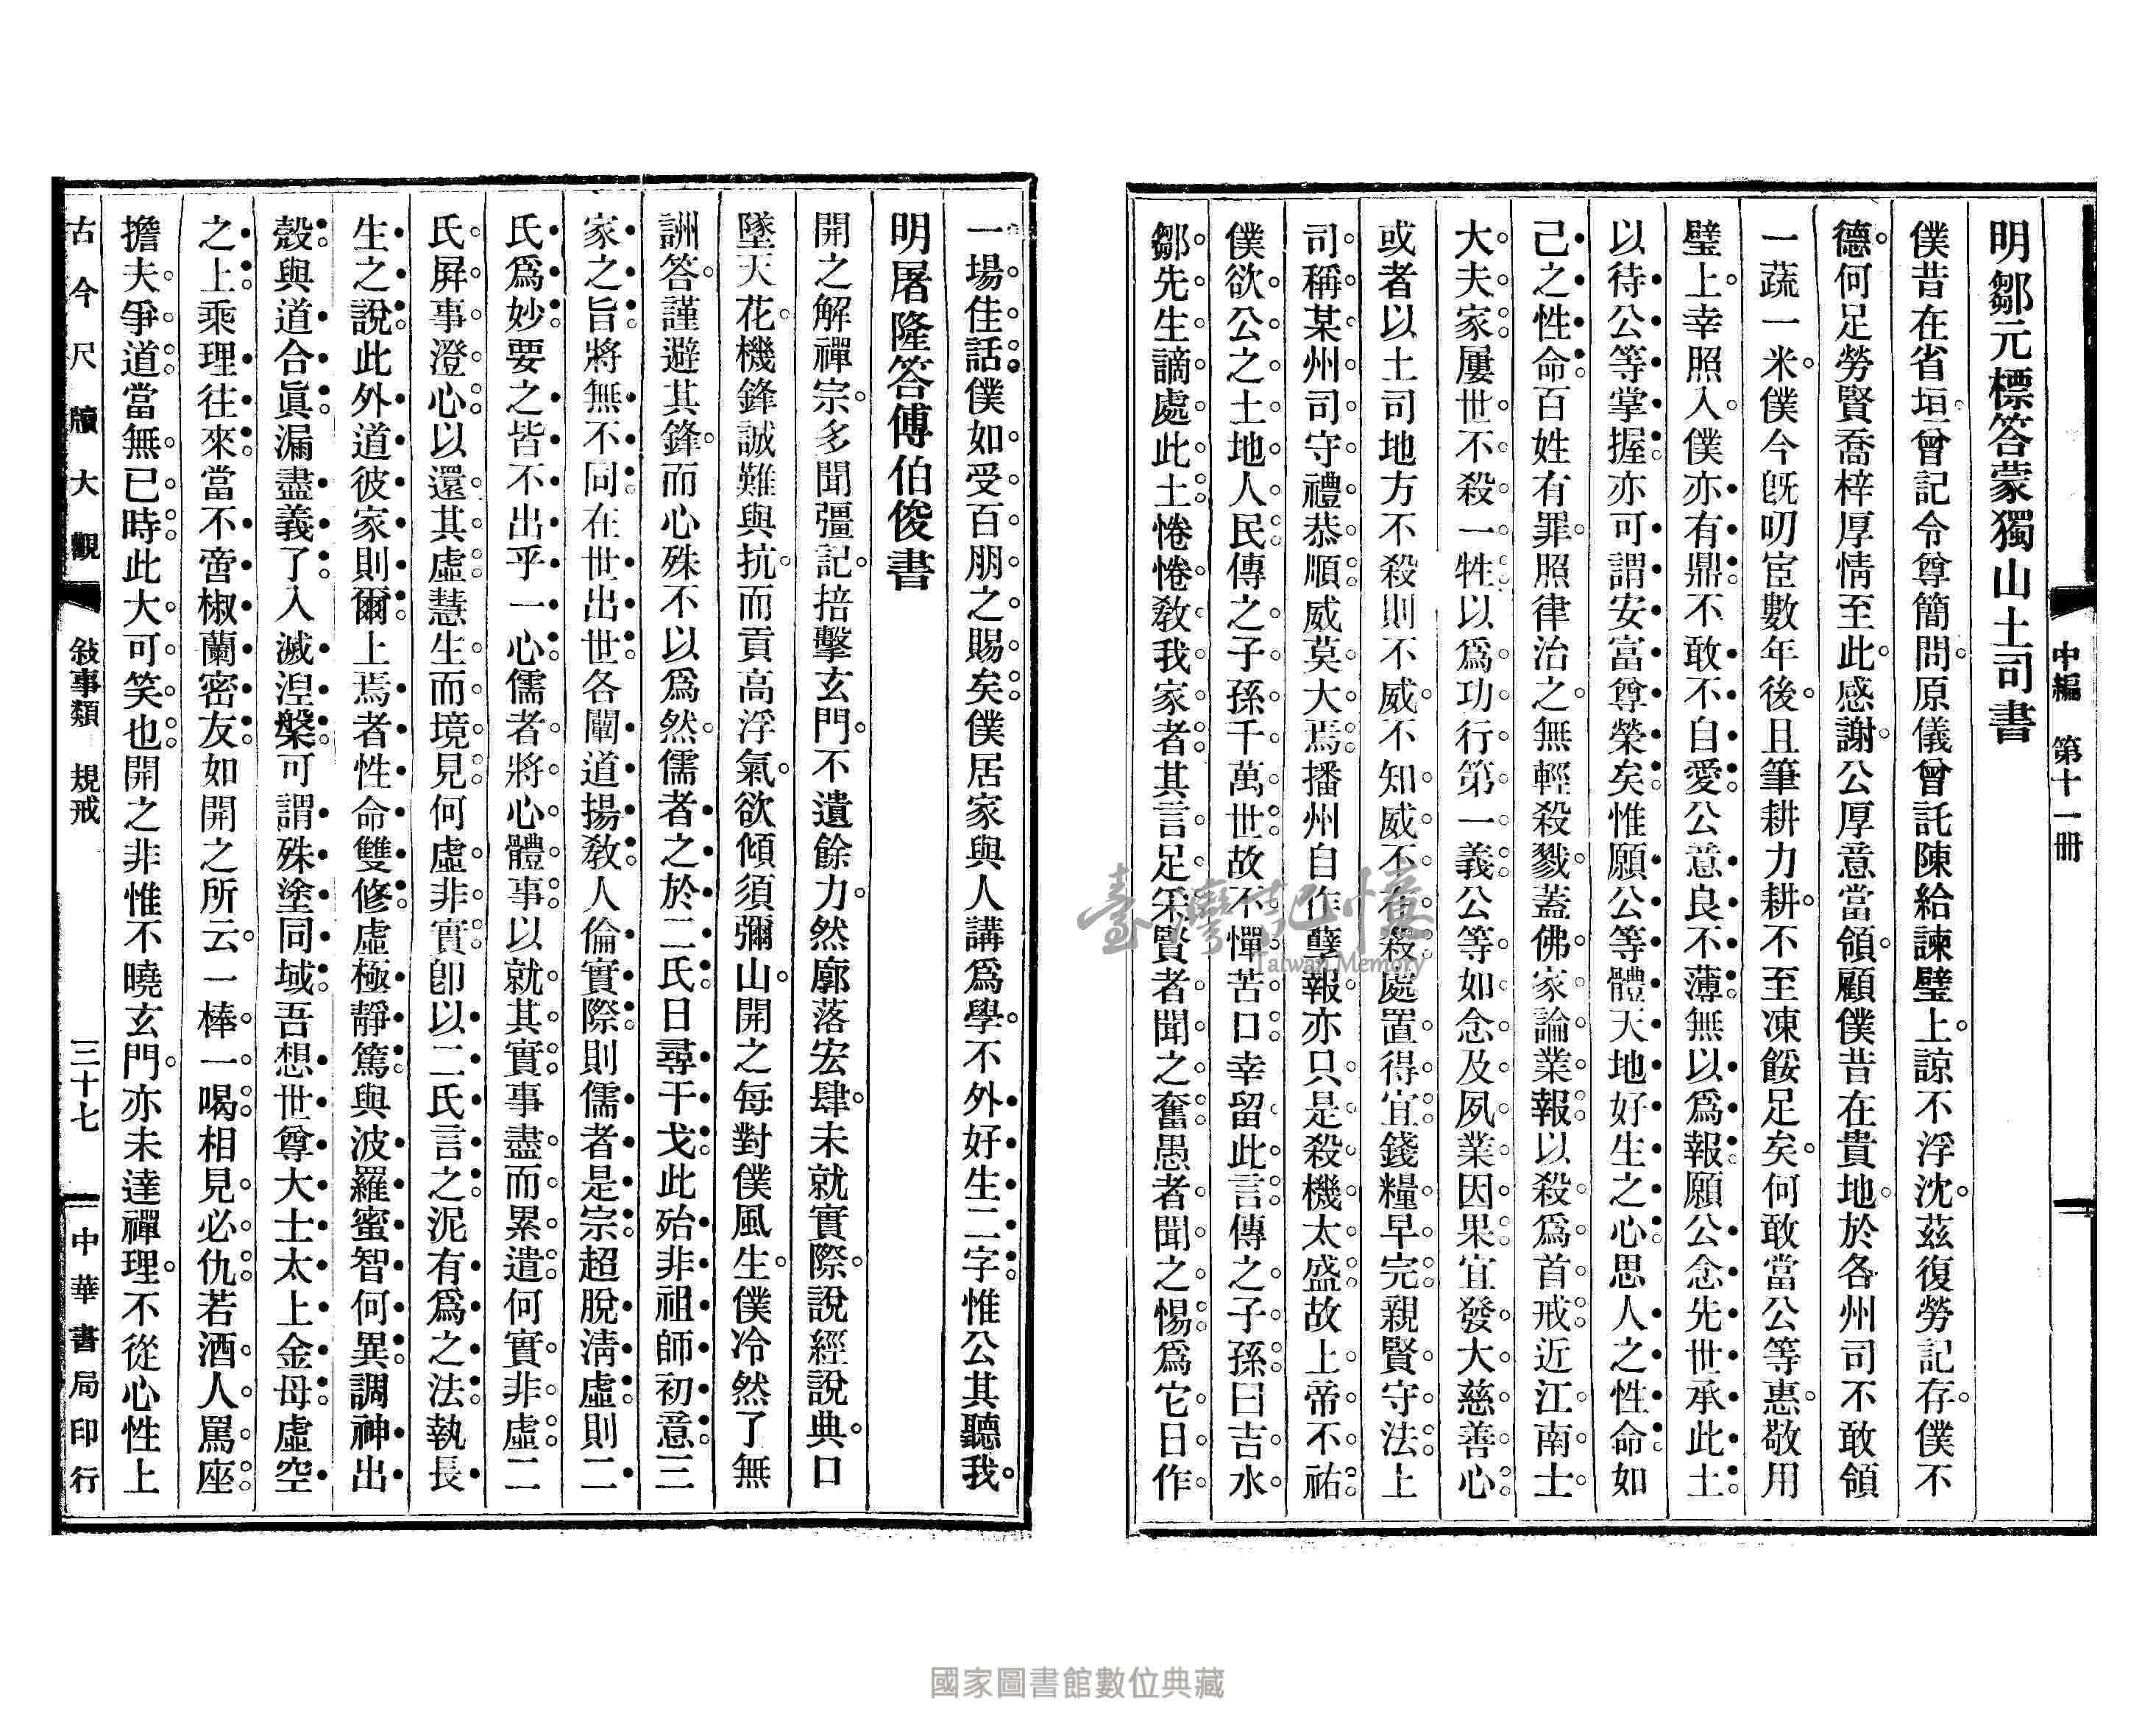 中編　第十一冊
明鄒元標答蒙獨山土司書
僕昔在省垣曾記令尊簡問原儀曾託陳給諫璧上諒不浮沈茲復勞記存僕不
德何足勞賢喬梓厚情至此感謝公厚意當領顧僕昔在貴地於各州司不敢領
一蔬一米僕今旣叨宦數年後且筆耕力耕不至凍餒足矣何敢當公等惠敬用
璧上幸照入僕亦有鼎不敢不自愛公意良不薄無以爲報願公念先世承此土
以待公等掌握亦可謂安富尊榮矣惟願公等體天地好生之心思人之性命如
己之性命百姓有罪照律治之無輕殺戮蓋佛家論業報以殺爲首戒近江南士
大夫家屢世不殺一牲以爲功行第一義公等如念及夙業因果宜發大慈善心
或者以土司地方不殺則不威不知威不在殺處置得宜錢糧早完親賢守法上
司稱某州司守禮恭順威莫大焉播州自作孽報亦只是殺機太盛故上帝不祐
僕欲公之土地人民傳之子孫千萬世故不憚苦口幸留此言傳之子孫曰吉水
鄒先生謫處此土惓惓敎我家者其言足采賢者聞之奮愚者聞之惕爲它日作
一場佳話僕如受百朋之賜矣僕居家與人講爲學不外好生二字惟公其聽我
明屠隆答傅伯俊書
開之解禪宗多聞彊記掊擊玄門不遺餘力然廓落宏肆未就實際說經說典口
墜天花機鋒誠難與抗而貢高浮氣欲傾須彌山開之每對僕風生僕冷然了無
詶答謹避其鋒而心殊不以爲然儒者之於二氏日尋干戈此殆非祖師初意三
家之旨將無不同在世出世各闡道揚敎人倫實際則儒者是宗超脫淸虛則二
氏爲妙要之皆不出乎一心儒者將心體事以就其實事盡而累遣何實非虛二
氏屛事澄心以還其虛慧生而境見何虛非實卽以二氏言之泥有爲之法執長
生之說此外道彼家則爾上焉者性命雙修虛極靜篤與波羅蜜智何異調神出
殼與道合眞漏盡義了入滅湼槃可謂殊塗同域吾想世尊大士太上金母虛空
之上乘理往來當不啻椒蘭密友如開之所云一棒一喝相見必仇若酒人罵座
擔夫爭道當無已時此大可笑也開之非惟不曉玄門亦未達禪理不從心性上
古今尺牘大觀　敍事類　規戒　三十七　中華書局印行
臺灣記憶
Taiwan Memory
國家圖書館數位典藏